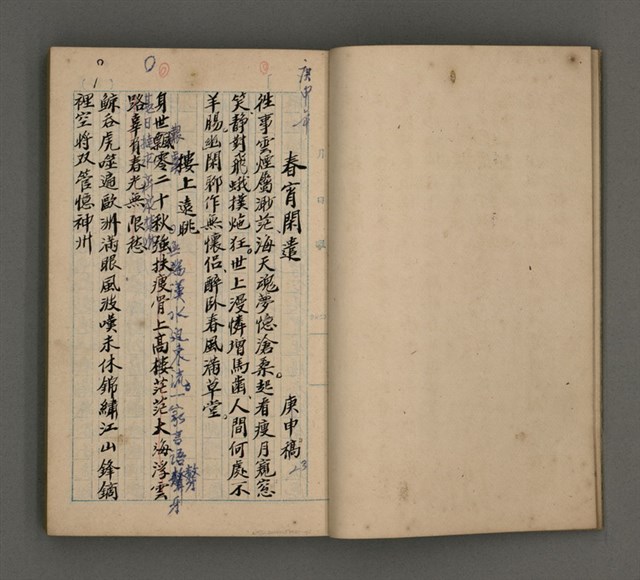 庚申年
春宵閑遣　庚申稿
往事雲煙屬渺茫海天魂夢憶滄桑起看瘦月窺窓
笑静對飛蛾撲炧狂。世上漫憐増馬齒人間何處不
羊腸幽閑聊作無懷侶醉卧春風滿草堂。
樓上遠眺
身世飄零二十秋強扶瘦骨上高樓茫茫大海浮雲
路辜負春光無限愁
鯨吞虎噬遍歐洲滿眼風波嘆未休錦繡江山鋒鏑
裡空將双管憶神州